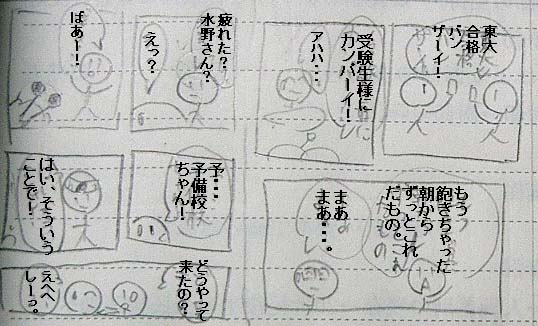 東大
合格
バン
ザーイ!
受験生様に
カンパーイ!
アハハ・・・
もう
飽きちゃった
朝から
ずっとこれ
だもの。
まあ
まあ・・・。
疲れた?
水野さん?
えっ?
ばあー!
予・・・
予備校
ちゃん!
はい、そういう
ことでー!
どうやって
来たの?
えへへ
しーっ。